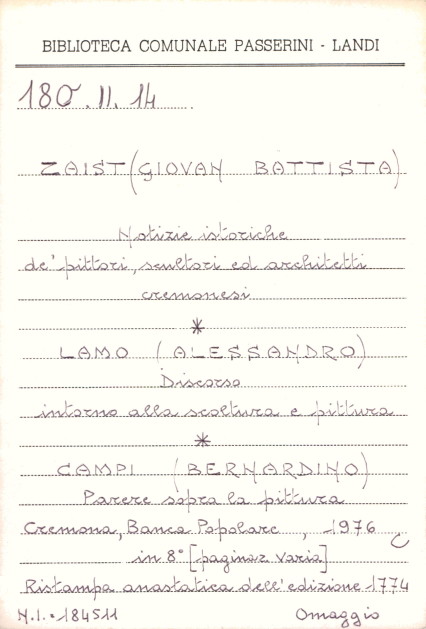 BIBLIOTECA COMUNALE PASSERINI - LANDI
180.II.14
ZAIST (GIOVAN BATTISTA)
Notizie istoriche
de' pittori, scultori ed architetti
cremonesi
*
LAMO (ALESSANDRO)
Discorso
intorno alla scoltura e pittura
*
CAMPI (BERNARDINO)
Parere sopra la pittura
Cremona, Banca Popolare , 1976
in 8° [paginaz varia]
Ristampa anastatica dell'edizione 1774
N.I. = 184511 Omaggio